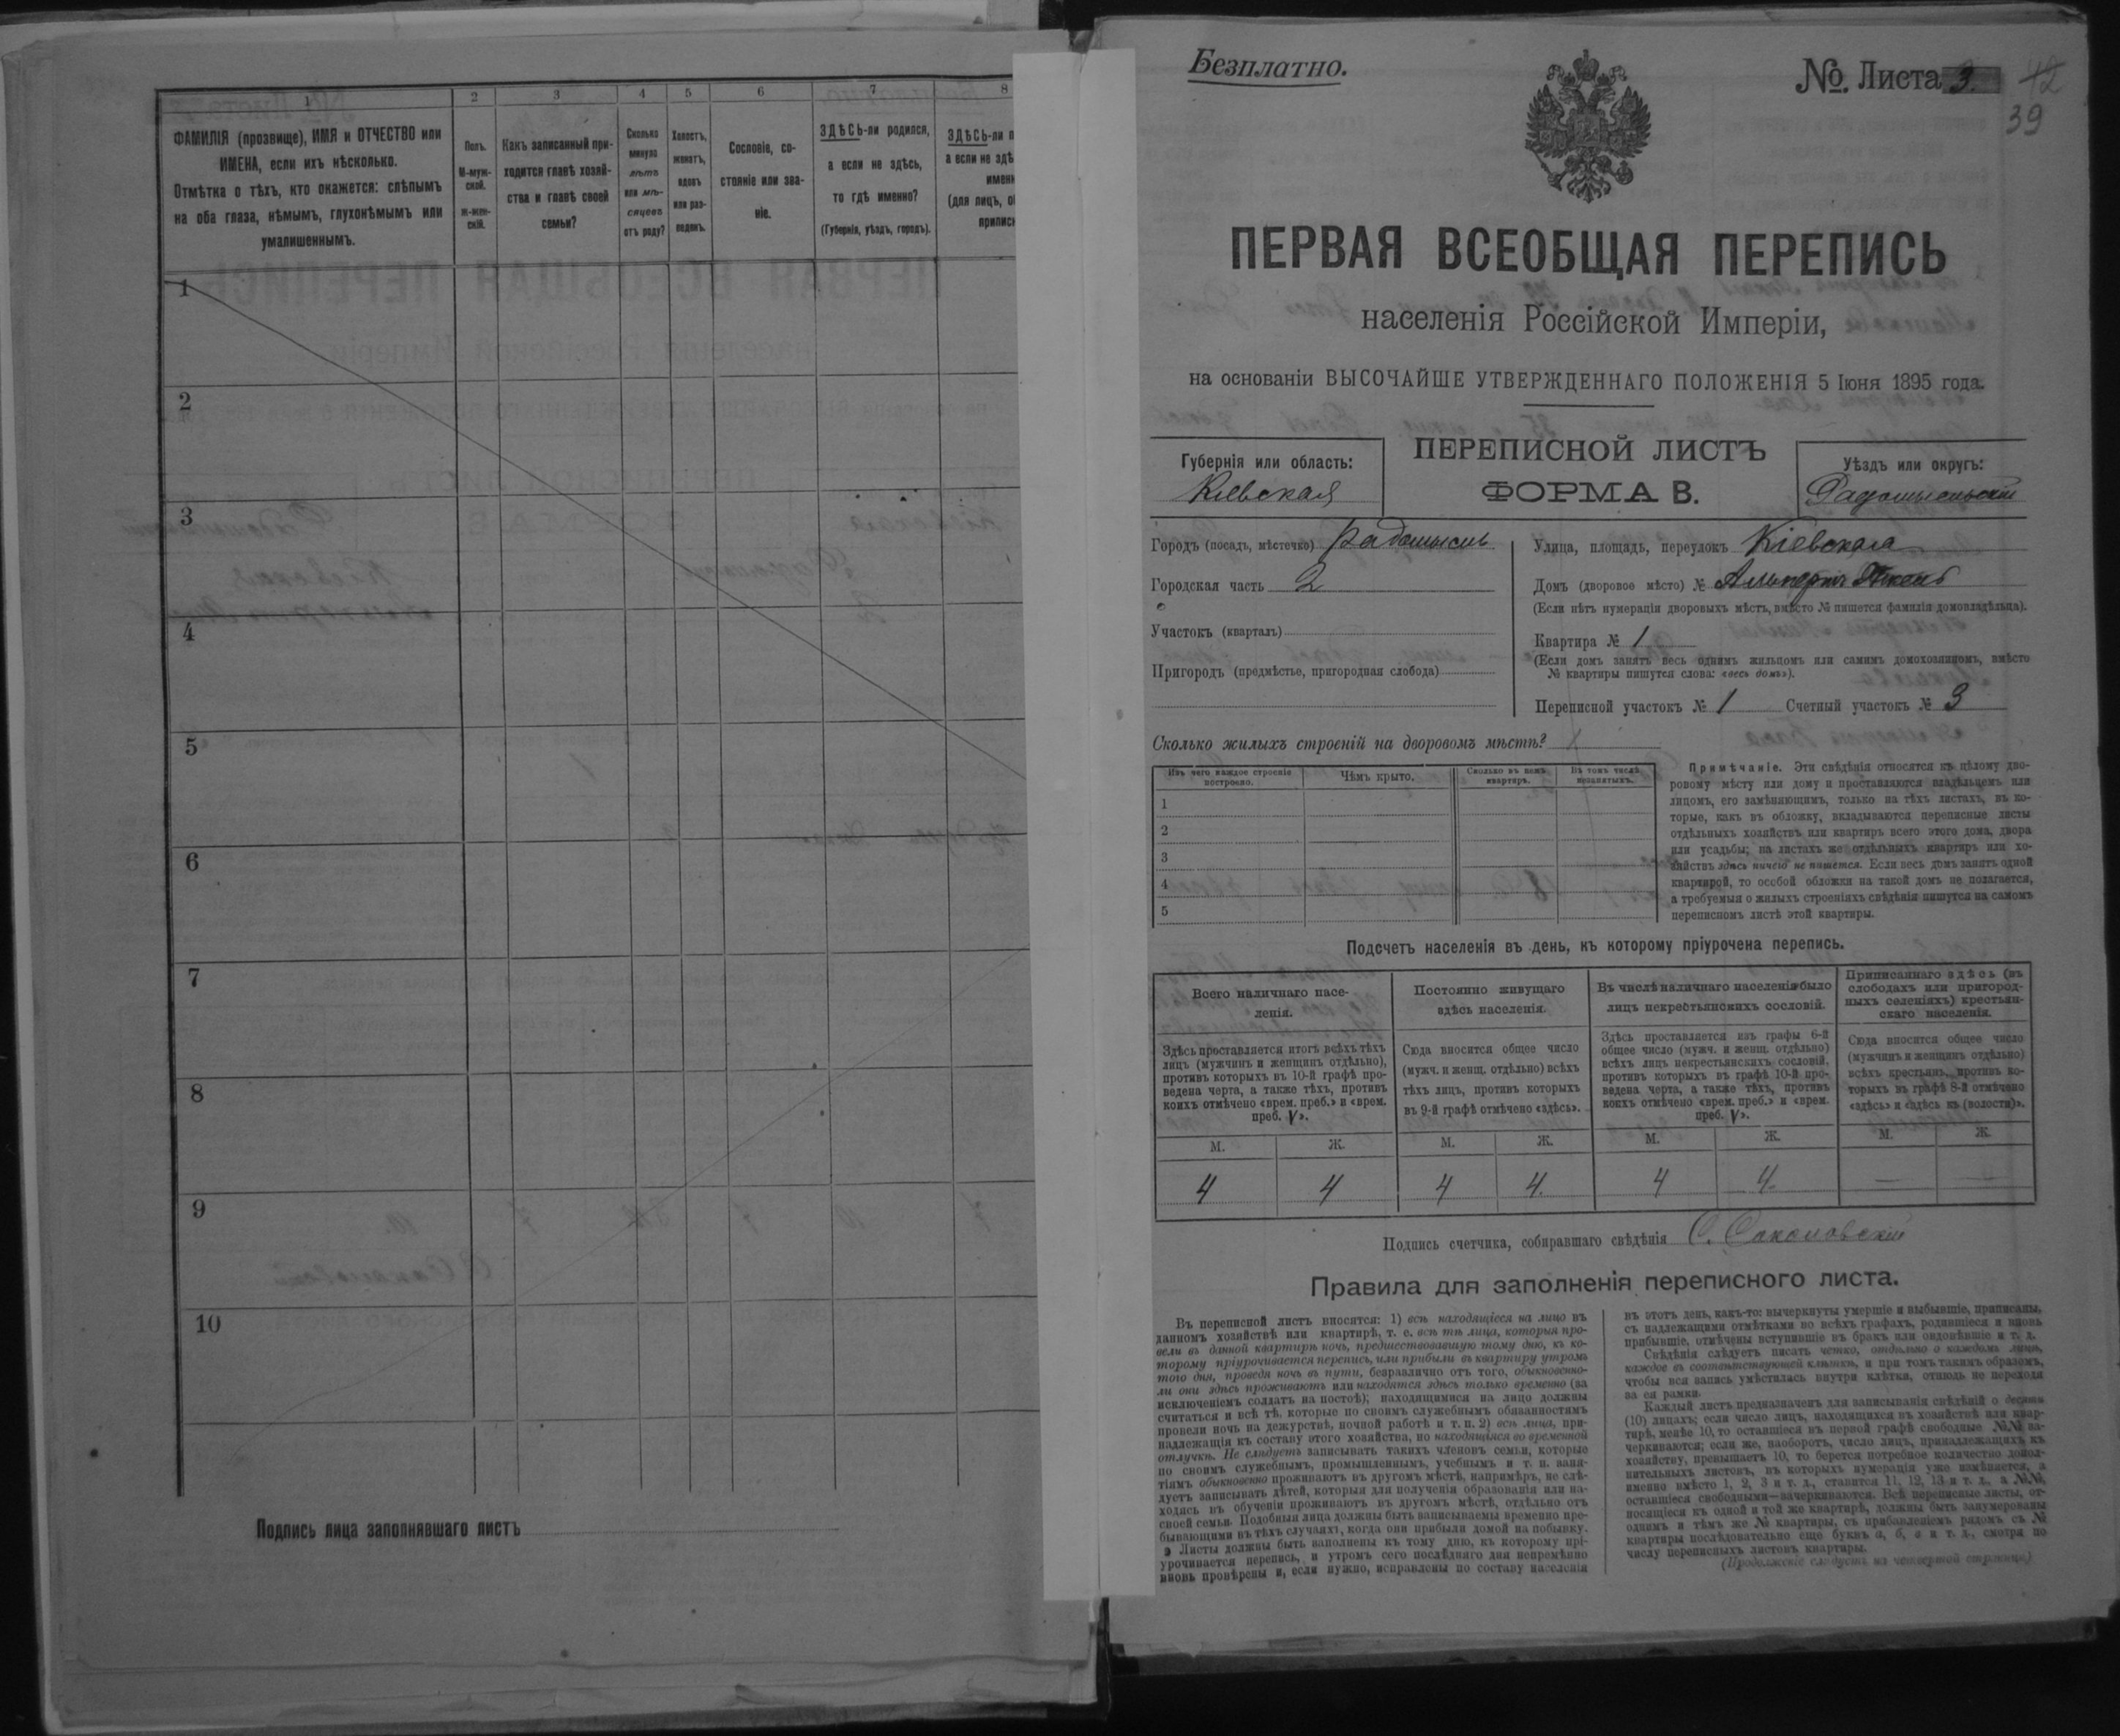 1
ФАМИЛІЯ (прозвище), ИМЯ и ОТЧЕСТВО или
ИМЕНА, если ихъ нѣсколько.
Отмѣтка о тѣхъ, кто окажется: слѣпымъ
на оба глаза, нѣмымъ, глухонѣмымъ или
умалишеннымъ.
2
Полъ.
М-муж-
ской.
Ж-жен-
скій.
3
Какъ записанный при-
ходится главѣ хозяй-
ства и главѣ своей
семьи?
4
Сколько
минуло
лѣтъ
или мѣ-
сяцевъ
отъ роду?
5
Холостъ,
женатъ,
вдовъ
или раз-
веденъ.
6
Сословіе, со-
стояніе или зва-
ніе.
7
ЗДѢСЬ-ли родился,
а если не здѣсь,
то гдѣ именно?
(Губернія, уѣздъ, городъ).
8
ЗДѢСЬ-ли п
а если не здѣ
именн
(для лицъ, о
приписк
1
2
3
4
5
6
7
8
9
10
Подпись лица заполнявшаго листъ
Безплатно.
№ Листа 3.
42
39
ПЕРВАЯ ВСЕОБЩАЯ ПЕРЕПИСЬ
населенія Россійской Имперіи,
на основаніи ВЫСОЧАЙШЕ УТВЕРЖДЕННАГО ПОЛОЖЕНІЯ 5 Іюня 1895 года.
Губернія или область:
Кіевская
ПЕРЕПИСНОЙ ЛИСТЪ
ФОРМА В.
Уѣздъ или округъ:
Радомысльскій
Городъ (посадъ, мѣстечко) Радомысль
Городская часть 2
Участокъ (кварталъ)
Пригородъ (предмѣстье, пригородная слобода)
Улица, площадь, переулокъ Кіевская
Домъ (дворовое мѣсто) № Альперта
(Если нѣтъ нумераціи дворовыхъ мѣстъ, вмѣсто № пишется фамилія домовладѣльца).
Квартира № 1
(Если домъ занятъ весь однимъ жильцомъ или самимъ домохозяиномъ, вмѣсто
№ квартиры пишутся слова: «весь домъ»).
Переписной участокъ № 1 Счетный участокъ № 3
Сколько жилыхъ строеній на дворовомъ мѣстѣ?
Изъ чего каждое строеніе
построено.
Чѣмъ крыто.
Сколько въ немъ
квартиръ.
Въ томъ числѣ
незанятыхъ.
1
2
3
4
5
Примѣчаніе. Эти свѣдѣнія относятся къ цѣлому дво-
ровому мѣсту или дому и проставляются владѣльцемъ или
лицомъ, его замѣняющимъ, только на тѣхъ листахъ, въ ко-
торые, какъ въ обложку, вкладываются переписные листы
отдѣльныхъ хозяйствъ или квартиръ всего этого дома, двора
или усадьбы; на листахъ же отдѣльныхъ квартиръ или хо-
зяйствъ здѣсь ничего не пишется. Если весь домъ занятъ одной
квартирой, то особой обложки на такой домъ не полагается,
а требуемыя о жилыхъ строеніяхъ свѣдѣнія пишутся на самомъ
переписномъ листѣ этой квартиры.
Подсчетъ населенія въ день, къ которому пріурочена перепись.
Всего наличнаго насе-
ленія.
Здѣсь проставляется итогъ всѣхъ тѣхъ
лицъ (мужчинъ и женщинъ отдѣльно),
противъ которыхъ въ 10-й графѣ про-
ведена черта, а также тѣхъ, противъ
коихъ отмѣчено «врем. преб.» и «врем.
преб. V».
Постоянно живущаго
здѣсь населенія.
Сюда вносится общее число
(мужч. и женщ. отдѣльно) всѣхъ
тѣхъ лицъ, противъ которыхъ
въ 9-й графѣ отмѣчено «здѣсь».
Въ числѣ наличнаго населенія было
лицъ некрестьянскихъ сословій.
Здѣсь проставляется изъ графы 6-й
общее число (мужч. и женщ. отдѣльно)
всѣхъ лицъ некрестьянскихъ сословій,
противъ которыхъ въ графѣ 10-й про-
ведена черта, а также тѣхъ, противъ
коихъ отмѣчено «врем. преб.» и «врем.
преб. V».
Приписаннаго здѣсь (въ
слободахъ или пригород-
ныхъ селеніяхъ) крестьян-
скаго населенія.
Сюда вносится общее число
(мужчинъ и женщинъ отдѣльно)
всѣхъ крестьянъ, противъ ко-
торыхъ въ графѣ 8-й отмѣчено
«здѣсь» и «здѣсь къ (волости)».
М. Ж. М. Ж. М. Ж. М. Ж.
4 4 4 4. 4 4. — —
Подпись счетчика, собиравшаго свѣдѣнія С. Соколовскій
Правила для заполненія переписного листа.
Въ переписной листъ вносятся: 1) всѣ находящіеся на лицо въ
данномъ хозяйствѣ или квартирѣ, т. е. всѣ тѣ лица, которыя про-
вели въ данной квартирѣ ночь, предшествовавшую тому дню, къ ко-
торому пріурочивается перепись, или прибыли въ квартиру утромъ
того дня, проведя ночь въ пути, безразлично отъ того, обыкновенно-
ли они здѣсь проживаютъ или находятся здѣсь только временно (за
исключеніемъ солдатъ на постоѣ); находящимися на лицо должны
считаться и всѣ тѣ, которые по своимъ служебнымъ обязанностямъ
провели ночь на дежурствѣ, ночной работѣ и т. п. 2) всѣ лица, при-
надлежащія къ составу этого хозяйства, но находящіяся во временной
отлучкѣ. Не слѣдуетъ записывать такихъ членовъ семьи, которые
по своимъ служебнымъ, промышленнымъ, учебнымъ и т. п. заня-
тіямъ обыкновенно проживаютъ въ другомъ мѣстѣ, напримѣръ, не слѣ-
дуетъ записывать дѣтей, которыя для полученія образованія или на-
ходясь въ обученіи проживаютъ въ другомъ мѣстѣ, отдѣльно отъ
своей семьи. Подобныя лица должны быть записываемы временно пре-
бывающими въ тѣхъ случаяхъ, когда они прибыли домой на побывку.
Листы должны быть заполнены къ тому дню, къ которому прі-
урочивается перепись, и утромъ сего послѣдняго дня непремѣнно
вновь провѣрены и, если нужно, исправлены по составу населенія
въ этотъ день, какъ-то: вычеркнуты умершіе и выбывшіе, приписаны,
съ надлежащими отмѣтками во всѣхъ графахъ, родившіеся и вновь
прибывшіе, отмѣчены вступившіе въ бракъ или овдовѣвшіе и т. д.
Свѣдѣнія слѣдуетъ писать четко, отдѣльно о каждомъ лицѣ,
каждое въ соотвѣтствующей клѣткѣ, и при томъ такимъ образомъ,
чтобы вся запись умѣстилась внутри клѣтки, отнюдь не переходя
за ея рамки.
Каждый листъ предназначенъ для записыванія свѣдѣній о десяти
(10) лицахъ; если число лицъ, находящихся въ хозяйствѣ или квар-
тирѣ, менѣе 10, то оставшіеся въ первой графѣ свободные №№ за-
черкиваются; если же, наоборотъ, число лицъ, принадлежащихъ къ
хозяйству, превышаетъ 10, то берется потребное количество допол-
нительныхъ листовъ, въ которыхъ нумерація уже измѣняется, а
именно вмѣсто 1, 2, 3 и т. д., ставится 11, 12, 13 и т. д., а №№,
оставшіеся свободными—зачеркиваются. Всѣ переписные листы, от-
носящіеся къ одной и той же квартирѣ, должны быть занумерованы
однимъ и тѣмъ же № квартиры, съ прибавленіемъ рядомъ съ №
квартиры послѣдовательно еще буквъ а, б, в и т. д., смотря по
числу переписныхъ листовъ квартиры.
(Продолженіе слѣдуетъ на четвертой страницѣ)